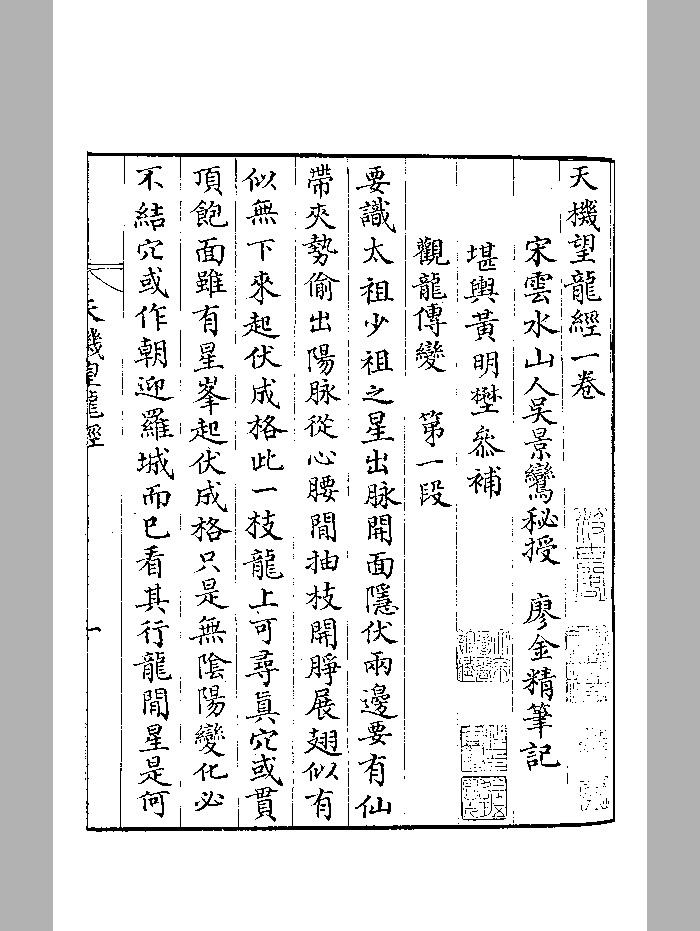 天機望龍經一卷
宋雲水山人吳景鸞秘授 廖金精筆記
堪輿黃明壄叅補
觀龍傳變 第一段
要識太祖少祖之星出脉開面隱伏兩邊要有仙
帶夾勢偷出陽脉從心腰間抽枝開睜展翅似有
似無下來起伏成格此一枝龍上可尋眞穴或貫
頂飽面雖有星峯起伏成格只是無陰陽變化必
不結穴或作朝迎羅城而已看其行龍間星是何
天機望龍經
一